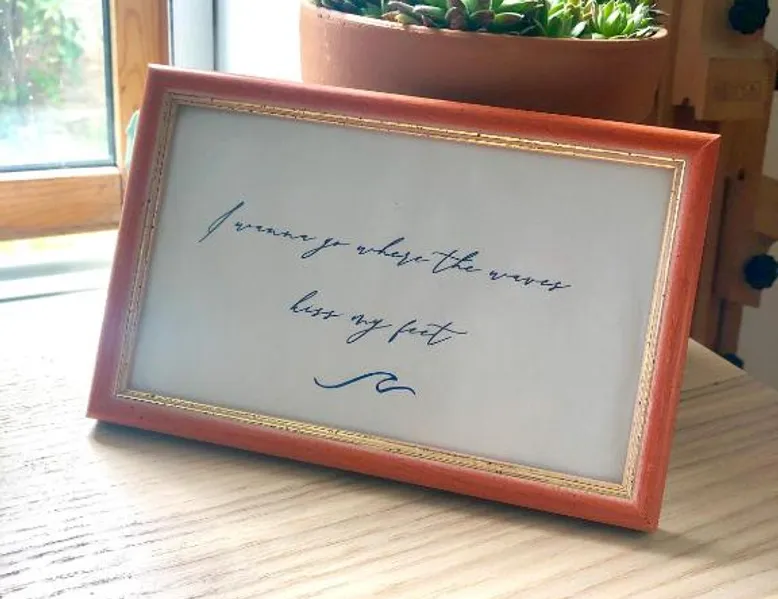 I wanna go where the waves
kiss my feet